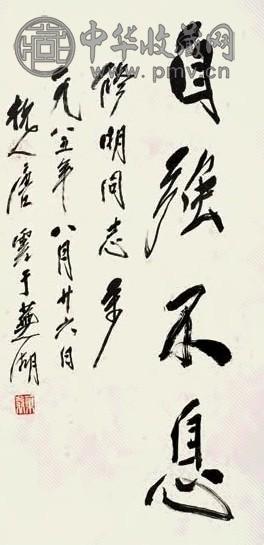 中华收藏网
www.pmv.cn
自强不息
修明同志
一九八五年八月廿六日
杭人唐雲于蕪湖